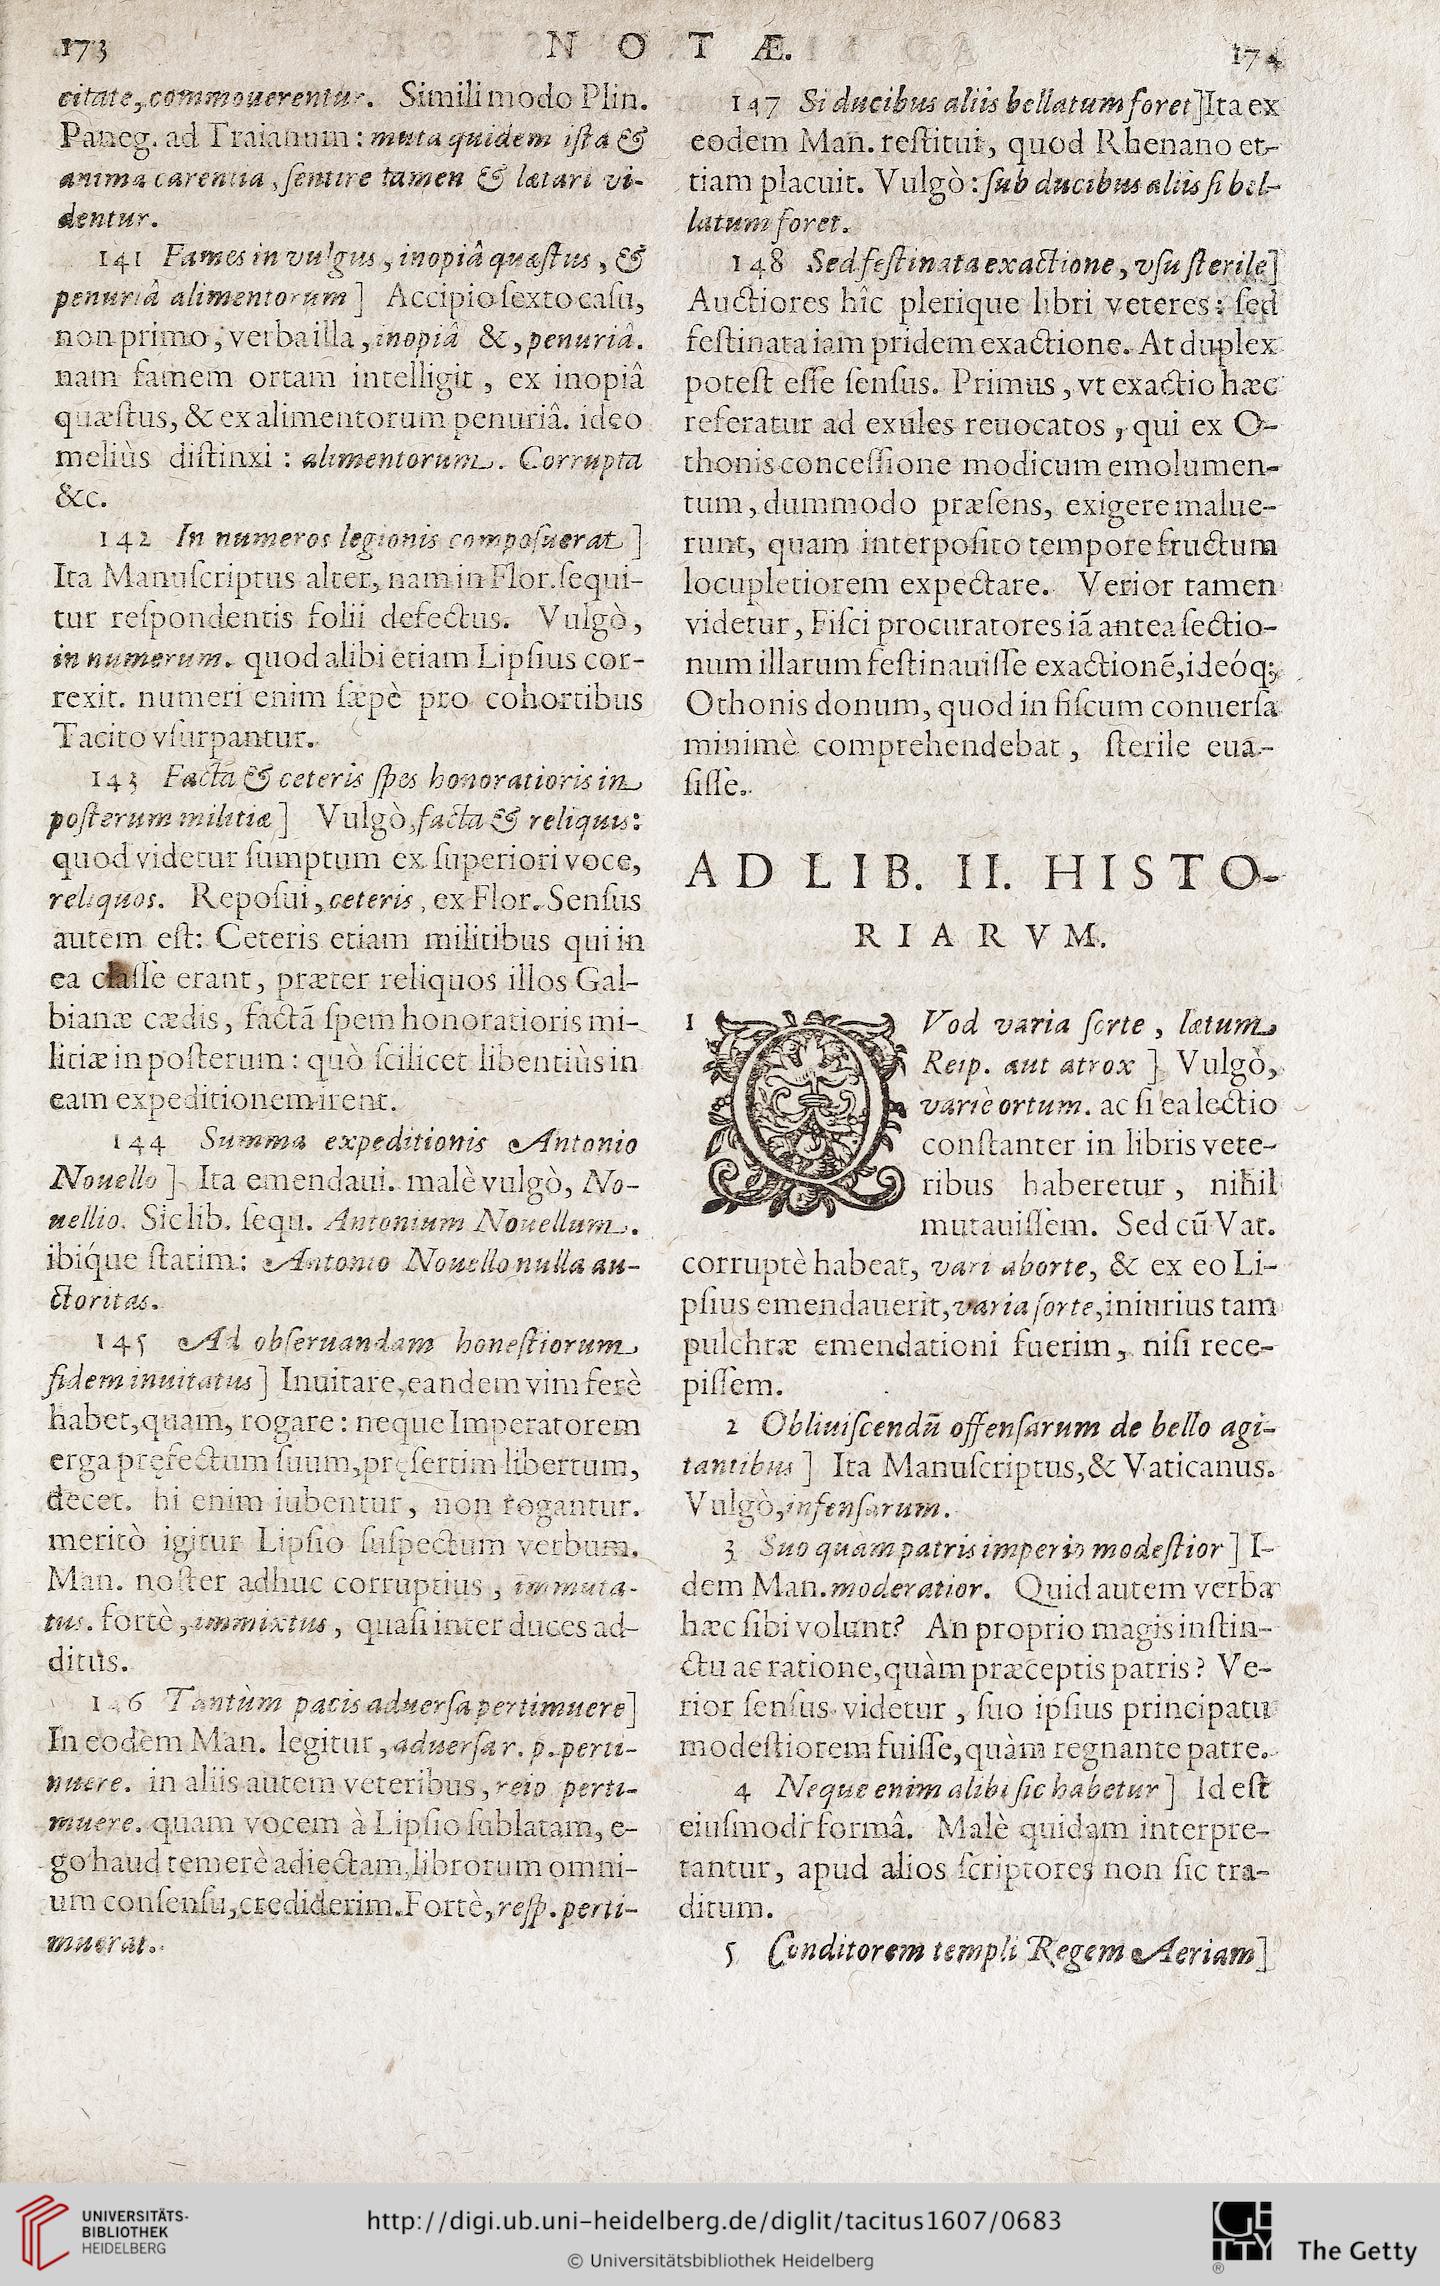 173 NOTÆ. 174
citate, commouerentur. Simili modo Plin.
Paneg. ad Traianum: muta quidem iſta &
anima carentia, ſentire tamen & lætari vi-
dentur.
141 Fames in vulgus, inopiâ quæſtus, &
penuriâ alimentorum] Accipio ſexto caſu,
non primo, verba illa, inopiâ &, penuriâ.
nam famem ortam intelligit, ex inopiâ
quæſtus, & ex alimentorum penuriâ. ideo
meliùs diſtinxi: alimentorum. Corrupta
&c.
142 In numeros legionis compoſuerat]
Ita Manuſcriptus alter, nam in Flor. ſequi-
tur reſpondentis folii defectus. Vulgò,
in numerum. quod alibi etiam Lipſius cor-
rexit. numeri enim ſæpè pro cohortibus
Tacito vſurpantur.
143 Facta & ceteris ſpes honoratioris in
poſterum militiæ] Vulgò, facta & reliquis:
quod videtur ſumptum ex ſuperiori voce,
reliquos. Repoſui, ceteris, ex Flor. Senſus
autem eſt: Ceteris etiam militibus qui in
ea claſſe erant, præter reliquos illos Gal-
bianæ cædis, factã ſpem honoratioris mi-
litiæ in poſterum: quò ſcilicet libentiùs in
eam expeditionem irent.
144 Summa expeditionis Antonio
Nouello] Ita emendaui. malè vulgò, No-
uellio. Sic lib. ſequ. Antonium Nouellum.
ibíque ſtatim: Antonio Nouello nulla au-
ctoritas.
145 Ad obſeruandam honeſtiorum
fidem inuitatus] Inuitare, eandem vim ferè
habet, quam, rogare: neque Imperatorem
erga pręfectum ſuum, pręſertim libertum,
decet. hi enim iubentur, non rogantur.
meritò igitur Lipſio ſuſpectum verbum.
Man. noſter adhuc corruptius, immuta-
tus. fortè, immixtus, quaſi inter duces ad-
ditus.
146 Tantùm pacis aduerſa pertimuere]
In eodem Man. legitur, aduerſa r. p. perti-
nuere. in aliis autem veteribus, reip perti-
muere. quam vocem à Lipſio ſublatam, e-
go haud temerè adiectam, librorum omni-
um conſenſu, crediderim. Fortè, reſp. perti-
muerat.
147 Si ducibus aliis bellatum foret] Ita ex
eodem Man. reſtitui, quod Rhenano et-
tiam placuit. Vulgò: ſub ducibus aliis ſi bel-
latum foret.
148 Sed feſtinata exactione, vſu ſterile]
Auctiores hîc plerique libri veteres: ſed
feſtinata iam pridem exactione. At duplex
poteſt eſſe ſenſus. Primus, vt exactio hæc
referatur ad exules reuocatos, qui ex O-
thonis conceſſione modicum emolumen-
tum, dummodo præſens, exigere malue-
runt, quam interpoſito tempore fructum
locupletiorem expectare. Verior tamen
videtur, Fiſci procuratores iã antea ſectio-
num illarum feſtinauiſſe exactionẽ, ideóq;
Othonis donum, quod in fiſcum conuerſa
minimè comprehendebat, ſterile eua-
ſiſſe.
AD LIB. II. HISTO-
RIARVM.
1 QVod varia ſorte, lætum
Reip. aut atrox] Vulgò,
variè ortum. ac ſi ea lectio
conſtanter in libris vete-
ribus haberetur, nihil
mutauiſſem. Sed cũ Vat.
corruptè habeat, vari aborte, & ex eo Li-
pſius emendauerit, varia ſorte, iniurius tam
pulchræ emendationi fuerim, niſi rece-
piſſem.
2 Obliuiſcendũ offenſarum de bello agi-
tantibus] Ita Manuſcriptus, & Vaticanus.
Vulgò, infenſarum.
3 Suo quàm patris imperio modeſtior] I-
dem Man. moderatior. Quid autem verba
hæc ſibi volunt? An proprio magis inſtin-
ctu ac ratione, quàm præceptis patris? Ve-
rior ſenſus videtur, ſuo ipſius principatu
modeſtiorem fuiſſe, quàm regnante patre.
4 Neque enim alibi ſic habetur] Id eſt
eiuſmodi formâ. Malè quidam interpre-
tantur, apud alios ſcriptores non ſic tra-
ditum.
5 Conditorem templi Regem Aeriam]
UNIVERSITÄTS-
BIBLIOTHEK
HEIDELBERG
http://digi.ub.uni-heidelberg.de/diglit/tacitus1607/0683
© Universitätsbibliothek Heidelberg
GETTY
®
The Getty